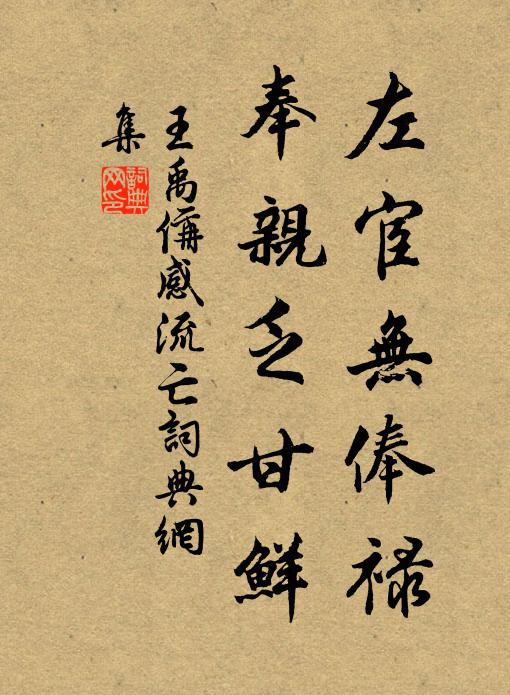 左宦無俸祿
奉親乏甘鮮
王禹偁感流亡詞典網
集
詞典
网印